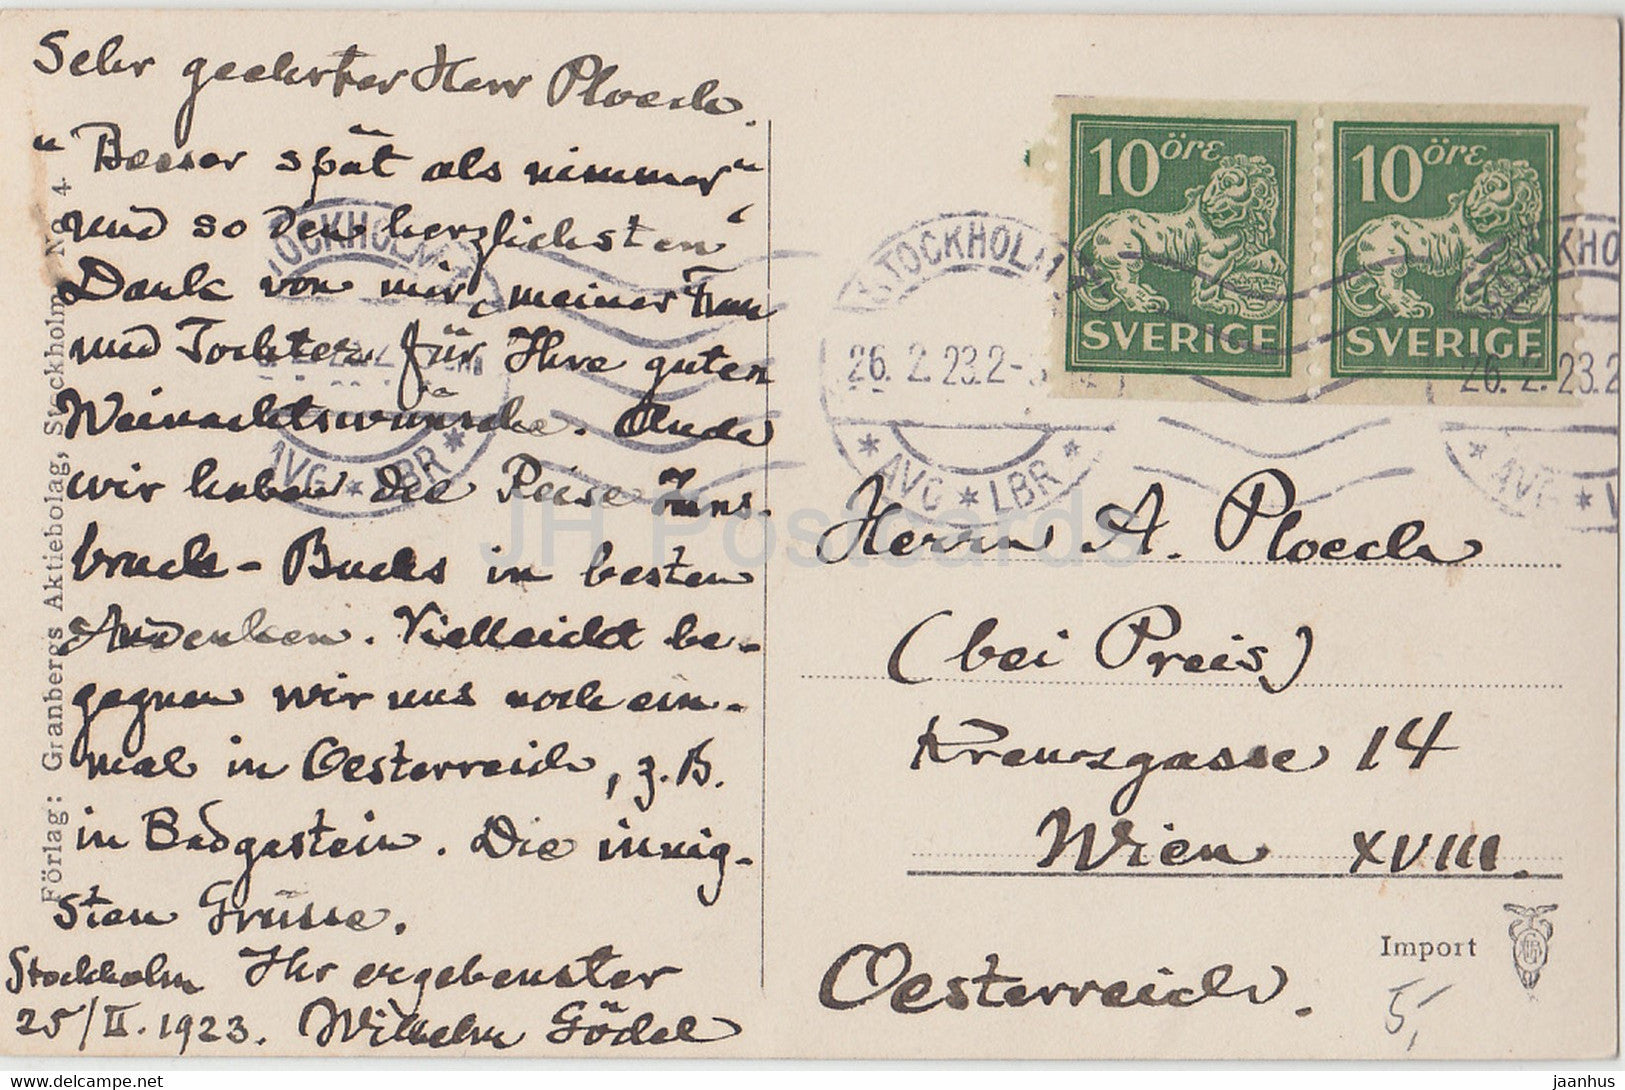 Sehr geehrter Herr Ploech.
"Besser spät als nimmer"
und so den herzlichsten
Dank von mir, meiner Frau
und Tochter für Ihre guten
Weinachtswünsche. Auch
wir haben die Reise Inns-
bruck - Buchs in besten
Andenken. Vielleicht be-
gegnen wir uns noch ein-
mal in Oesterreich, z.B.
in Badgastein. Die innig-
sten Grüsse.
Ihr ergebenster
Wilhelm Gödel
Stockholm
25/II. 1923.
Förlag: Granbergs Aktiebolag, Stockholm. No. 4
10 öre
SVERIGE
10 öre
SVERIGE
STOCKHOLM
AVG * LBR *
STOCKHOLM
26. 2. 23. 2-
* AVG * LBR *
CKHO
26. 2. 23. 2
* AVG *
Herrn A. Ploech
(bei Preis)
Kreuzgasse 14
Wien XVIII.
Oesterreich.
Import
5,-
JH Postcards
delcampe.net
jaanhus